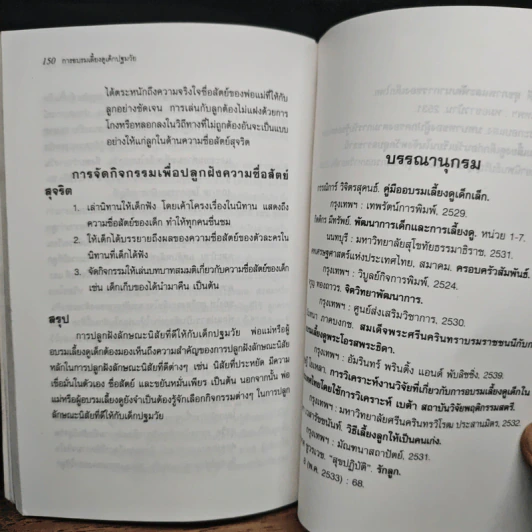 150 การอบรมเลี้ยงดูเด็กปฐมวัย
ได้ตระหนักถึงความจริงใจซื่อสัตย์ของพ่อแม่ที่ให้กับ
ลูกอย่างชัดเจน การเล่นกับลูกต้องไม่แฝงด้วยการ
โกงหรือหลอกลงในวิถีทางที่ไม่ถูกต้องอันจะเป็นแบบ
อย่างให้แก่ลูกในด้านความซื่อสัตย์สุจริต
การจัดกิจกรรมเพื่อปลูกฝังความซื่อสัตย์
สุจริต
1. เล่านิทานให้เด็กฟัง โดยเค้าโครงเรื่องในนิทาน แสดงถึง
ความซื่อสัตย์ของเด็ก ทำให้ทุกคนชื่นชม
2. ให้เด็กได้บรรยายถึงผลของความซื่อสัตย์ของตัวละครใน
นิทานที่เด็กได้ฟัง
3. จัดกิจกรรมให้เล่นบทบาทสมมติเกี่ยวกับความซื่อสัตย์ของเด็ก
เช่น เด็กเก็บของได้นำมาคืน เป็นต้น
สรุป
การปลูกฝังลักษณะนิสัยที่ดีให้กับเด็กปฐมวัย พ่อแม่หรือผู้
อบรมเลี้ยงดูเด็กต้องมองเห็นถึงความสำคัญของการปลูกฝังลักษณะนิสัย
หลักในการปลูกฝังลักษณะนิสัยที่ดีต่างๆ เช่น นิสัยที่ประหยัด มีความ
เชื่อมั่นในตัวเอง ซื่อสัตย์ และขยันหมั่นเพียร เป็นต้น นอกจากนั้น พ่อ
แม่หรือผู้อบรมเลี้ยงดูยังจำเป็นต้องรู้จักเลือกกิจกรรมต่างๆ ในการปลูก
ลักษณะนิสัยที่ดีให้กับเด็กปฐมวัย
บรรณานุกรม
กรรณิการ์ วิจิตรสุคนธ์. คู่มืออบรมเลี้ยงดูเด็กเล็ก.
กรุงเทพฯ : เทพรัตน์การพิมพ์, 2529.
มีทรัพย์. พัฒนาการเด็กและการเลี้ยงดู. หน่วย 1-7.
นนทบุรี : มหาวิทยาลัยสุโขทัยธรรมาธิราช, 2531.
เศรษฐศาสตร์แห่งประเทศไทย, สมาคม. ครอบครัวสัมพันธ์.
กรุงเทพฯ : วิบูลย์กิจการพิมพ์, 2524.
ทองถาวร. จิตวิทยาพัฒนาการ.
กรุงเทพฯ : ศูนย์ส่งเสริมวิชาการ, 2530.
ภาคบงกช. สมเด็จพระศรีนครินทราบรมราชชนนีกับก
เลี้ยงดูพระโอรสพระธิดา.
กรุงเทพฯ : อัมรินทร์ พริ้นติ้ง แอนด์ พับลิชชิ่ง, 2539.
การวิเคราะห์งานวิจัยที่เกี่ยวกับการอบรมเลี้ยงดูเด็กใน
โดยใช้การวิเคราะห์ เบต้า สถาบันวิจัยพฤติกรรมสตรี.
กรุงเทพฯ : มหาวิทยาลัยศรีนครินทรวิโรฒ ประสานมิตร, 2532.
วิธีเลี้ยงลูกให้เป็นคนเก่ง.
กรุงเทพฯ : มัณฑนาสถาปัตย์, 2531.
"สุขปฏิบัติ". รักลูก.
(พ.ค. 2533) : 68.